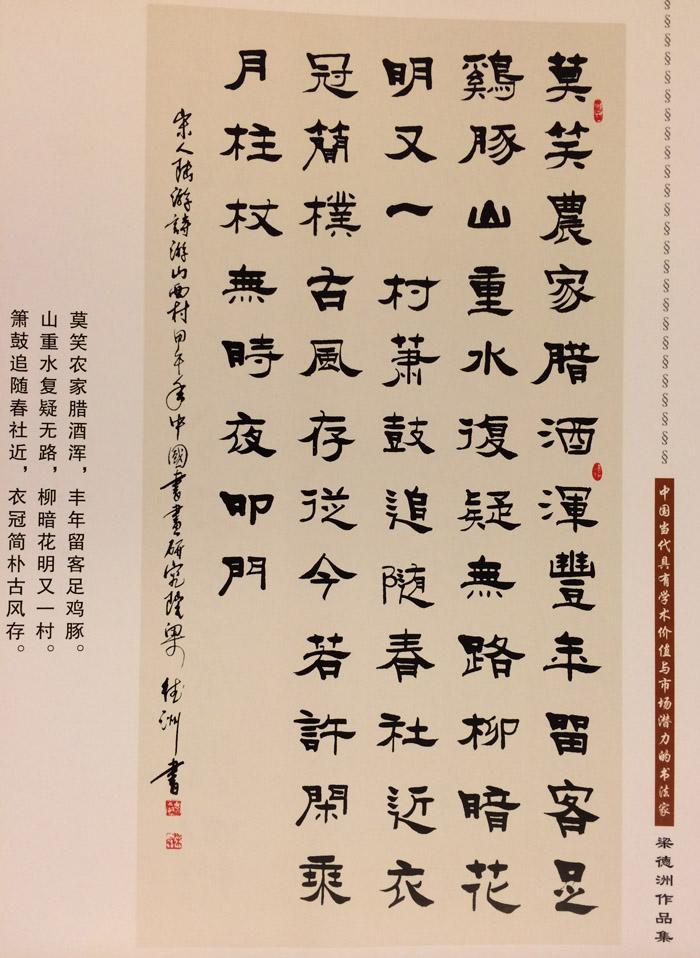 中国当代具有学术价值与市场潜力的书法家
梁德洲作品集
莫笑農家腊酒渾豐年留客足
鷄豚山重水復疑無路柳暗花
明又一村萧鼓追随春社近衣
冠簡樸古風存從今若許閑乘
月柱杖無時夜叩門
宋人陆游詩游山西村甲午年中國書畫研究院梁德洲書
莫笑农家腊酒浑，丰年留客足鸡豚。
山重水复疑无路，柳暗花明又一村。
箫鼓追随春社近，衣冠简朴古风存。